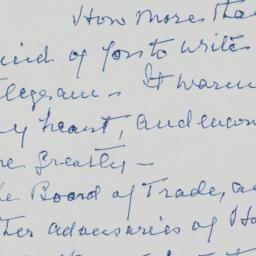 How more tha
kind of you to write
telegram - It warm
my heart, and encou
me greatly -
he Board of Trade, a
ther adversaries of Ho